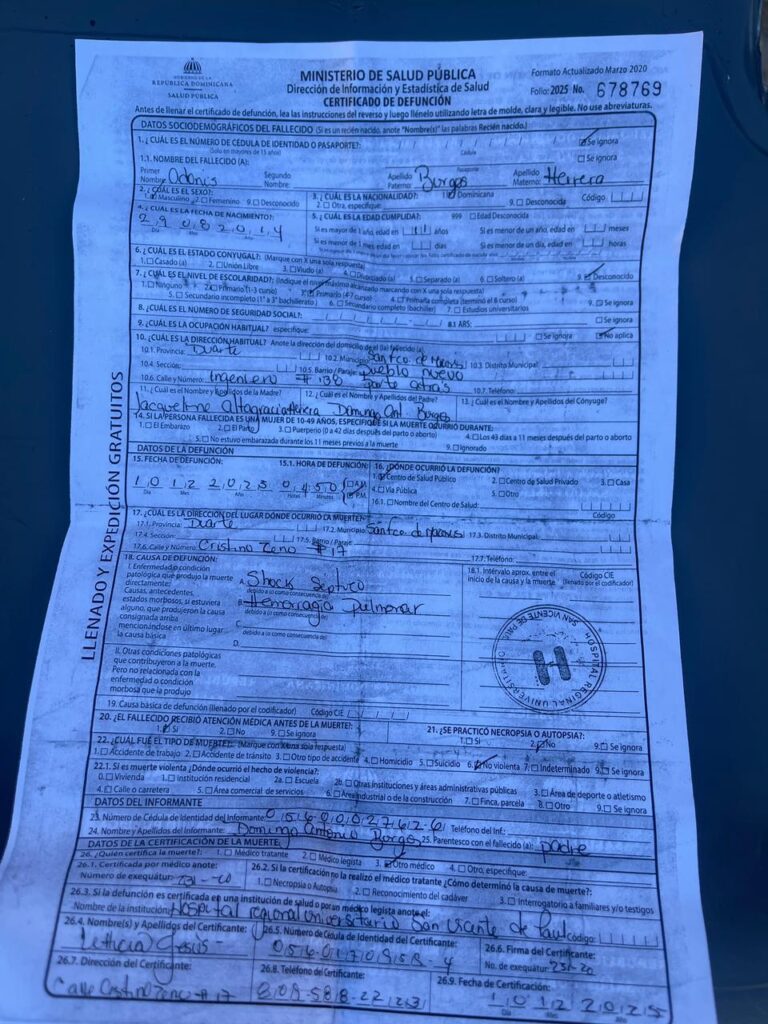 GOBIERNO DE LA
REPÚBLICA DOMINICANA
SALUD PÚBLICA
MINISTERIO DE SALUD PÚBLICA
Dirección de Información y Estadística de Salud
CERTIFICADO DE DEFUNCIÓN
Formato Actualizado Marzo 2020
Folio: 2025 No. 678769
Antes de llenar el certificado de defunción, lea las instrucciones del reverso y luego llénelo utilizando letra de molde, clara y legible. No use abreviaturas.
LLENADO Y EXPEDICIÓN GRATUITOS
DATOS SOCIODEMOGRÁFICOS DEL FALLECIDO (Si es un recién nacido, anote "Nombre(s)" las palabras Recién nacido.)
1. ¿CUÁL ES EL NÚMERO DE CÉDULA DE IDENTIDAD O PASAPORTE? Se ignora
(Solo en mayores de 15 años) Cédula
1.1. NOMBRE DEL FALLECIDO (A): Pasaporte Se ignora
Primer Nombre: Odonis Segundo Nombre: Apellido Paterno: Burgos Apellido Materno: Herrera
2. ¿CUÁL ES EL SEXO? 3. ¿CUÁL ES LA NACIONALIDAD? 1. Dominicana Código
Masculino 2. Femenino 9. Desconocido 2. Otra, especifique: 9. Desconocida
4. ¿CUÁL ES LA FECHA DE NACIMIENTO? 5. ¿CUÁL ES LA EDAD CUMPLIDA? 999 Edad Desconocida
29 08 2014 Si es mayor de 1 año, edad en 11 años Si es menor de un año, edad en meses
Día Mes Año Si es menor de 1 mes edad en días Si es menor de un día, edad en horas
6. ¿CUÁL ES EL ESTADO CONYUGAL? (Marque con X una sola respuesta)
1. Casado (a) 2. Unión Libre 3. Viudo (a) 4. Divorciado (a) 5. Separado (a) 6. Soltero (a) 9. Desconocido
7. ¿CUÁL ES EL NIVEL DE ESCOLARIDAD? (Indique el nivel máximo alcanzado marcando con X una sola respuesta)
1. Ninguno 2. Primario (1-3 curso) 3. Primario (4-7 curso) 4. Primaria completa (terminó el 8 curso)
5. Secundario incompleto (1° a 3° bachillerato) 6. Secundario completo (bachiller) 7. Estudios universitarios 9. Se ignora
8. ¿CUÁL ES EL NÚMERO DE SEGURIDAD SOCIAL? 8.1 ARS: Se ignora
9. ¿CUÁL ES LA OCUPACIÓN HABITUAL? especifique: Se ignora No aplica
10. ¿CUÁL ES LA DIRECCIÓN HABITUAL? Anote la dirección del domicilio de el (la) fallecido (a)
10.1. Provincia: Duarte 10.2. Municipio: 10.3. Distrito Municipal:
10.4. Sección: 10.5. Barrio / Paraje: Pueblo nuevo
10.6. Calle y Número: Ingeniero #138 parte atras 10.7. Teléfono:
11. ¿Cuál es el Nombre y Apellidos de la Madre? 12. ¿Cuál es el Nombre y Apellidos del Padre? 13. ¿Cuál es el Nombre y Apellidos del Cónyuge?
Jacqueline Altagracia Herrera Domingo Ant. Burgos
14. SI LA PERSONA FALLECIDA ES UNA MUJER DE 10-49 AÑOS, ESPECIFIQUE SI LA MUERTE OCURRIÓ DURANTE:
1. El Embarazo 2. El Parto 3. Puerperio (0 a 42 días después del parto o aborto) 4. Los 43 días a 11 meses después del parto o aborto
5. No estuvo embarazada durante los 11 meses previos a la muerte 9. Ignorado
DATOS DE LA DEFUNCIÓN
15. FECHA DE DEFUNCIÓN: 15.1. HORA DE DEFUNCIÓN: 16. ¿DÓNDE OCURRIÓ LA DEFUNCIÓN?
10 12 2025 04 50 A.M. P.M. 1. Centro de Salud Público 2. Centro de Salud Privado 3. Casa
Día Mes Año Horas Minutos 4. Vía Pública 5. Otro
16.1. Nombre del Centro de Salud Código
17. ¿CUÁL ES LA DIRECCIÓN DEL LUGAR DÓNDE OCURRIÓ LA MUERTE?
17.1. Provincia: Duarte 17.2. Municipio 17.3. Distrito Municipal:
17.4. Sección: 17.5. Barrio / Paraje:
17.6. Calle y Número: Cristino Zeno #17 17.7. Teléfono:
18. CAUSA DE DEFUNCIÓN: 18.1. Intérvalo aprox. entre el inicio de la causa y la muerte Código CIE (llenado por el codificador)
I. Enfermedad o condición patológica que produjo la muerte directamente: A. Shock Séptico
debido a (o como consecuencia de)
Causas, antecedentes, estados morbosos, si estuviera alguno, que produjeron la causa consignada arriba mencionándose en último lugar la causa básica B. Hemorragia pulmonar
debido a (o como consecuencia de)
C.
debido a (o como consecuencia de)
D.
II. Otras condiciones patológicas que contribuyeron a la muerte. Pero no relacionada con la enfermedad o condición morbosa que la produjo
HOSPITAL REGINAL UNIVERSITARIO SAN VICENTE DE PAUL
H
19. Causa básica de defunción (llenado por el codificador) Código CIE
20. ¿EL FALLECIDO RECIBIÓ ATENCIÓN MÉDICA ANTES DE LA MUERTE? 21. ¿SE PRACTICÓ NECROPSIA O AUTOPSIA?
1. Si 2. No 9. Se ignora 1. Si 2. No 9. Se ignora
22. ¿CUÁL FUÉ EL TIPO DE MUERTE? (Marque con X una sola respuesta)
1. Accidente de trabajo 2. Accidente de tránsito 3. Otro tipo de accidente 4. Homicidio 5. Suicidio 6. No violenta 7. Indeterminado 9. Se ignora
22.1. Si es muerte violenta ¿Dónde ocurrió el hecho de violencia?:
0. Vivienda 1. Institución residencial 2a. Escuela 2b. Otras instituciones y áreas administrativas públicas 3. Área de deporte o atletismo
4. Calle o carretera 5. Área comercial de servicios 6. Área industrial o de la construcción 7. Finca, parcela 8. Otro 9. Se ignora
DATOS DEL INFORMANTE
23. Número de Cédula de Identidad del Informante: 056 0002762-6 Teléfono del Inf.:
24. Nombre y Apellidos del Informante: Domingo Antonio Burgos 25. Parentesco con el fallecido (a): padre
DATOS DE LA CERTIFICACIÓN DE LA MUERTE:
26. ¿Quién certifica la muerte? 1. Médico tratante 2. Médico legista 3. Otro médico 4. Otro, especifique:
26.1. Certificada por médico anote: 26.2. Si la certificación no la realizó el médico tratante ¿Cómo determinó la causa de muerte?:
Número de exequátur: 251-20 1. Necropsia o Autopsia 2. Reconocimiento del cadáver 3. Interrogatorio a familiares y/o testigos
26.3. Si la defunción es certificada en una institución de salud o por un médico legista anote el:
Nombre de la institución: Hospital regional universitario San Vicente de Paul Código:
26.4. Nombre(s) y Apellidos del Certificante: 26.5. Número de Cédula de Identidad del Certificante: 26.6. Firma del Certificante:
056 0170958-4 No. de exequátur: 251-20
26.7. Dirección del Certificante: 26.8. Teléfono del Certificante: 26.9. Fecha de Certificación:
Calle Cristino Zeno #17 809-588-22 10 12 2025
Día Mes Año